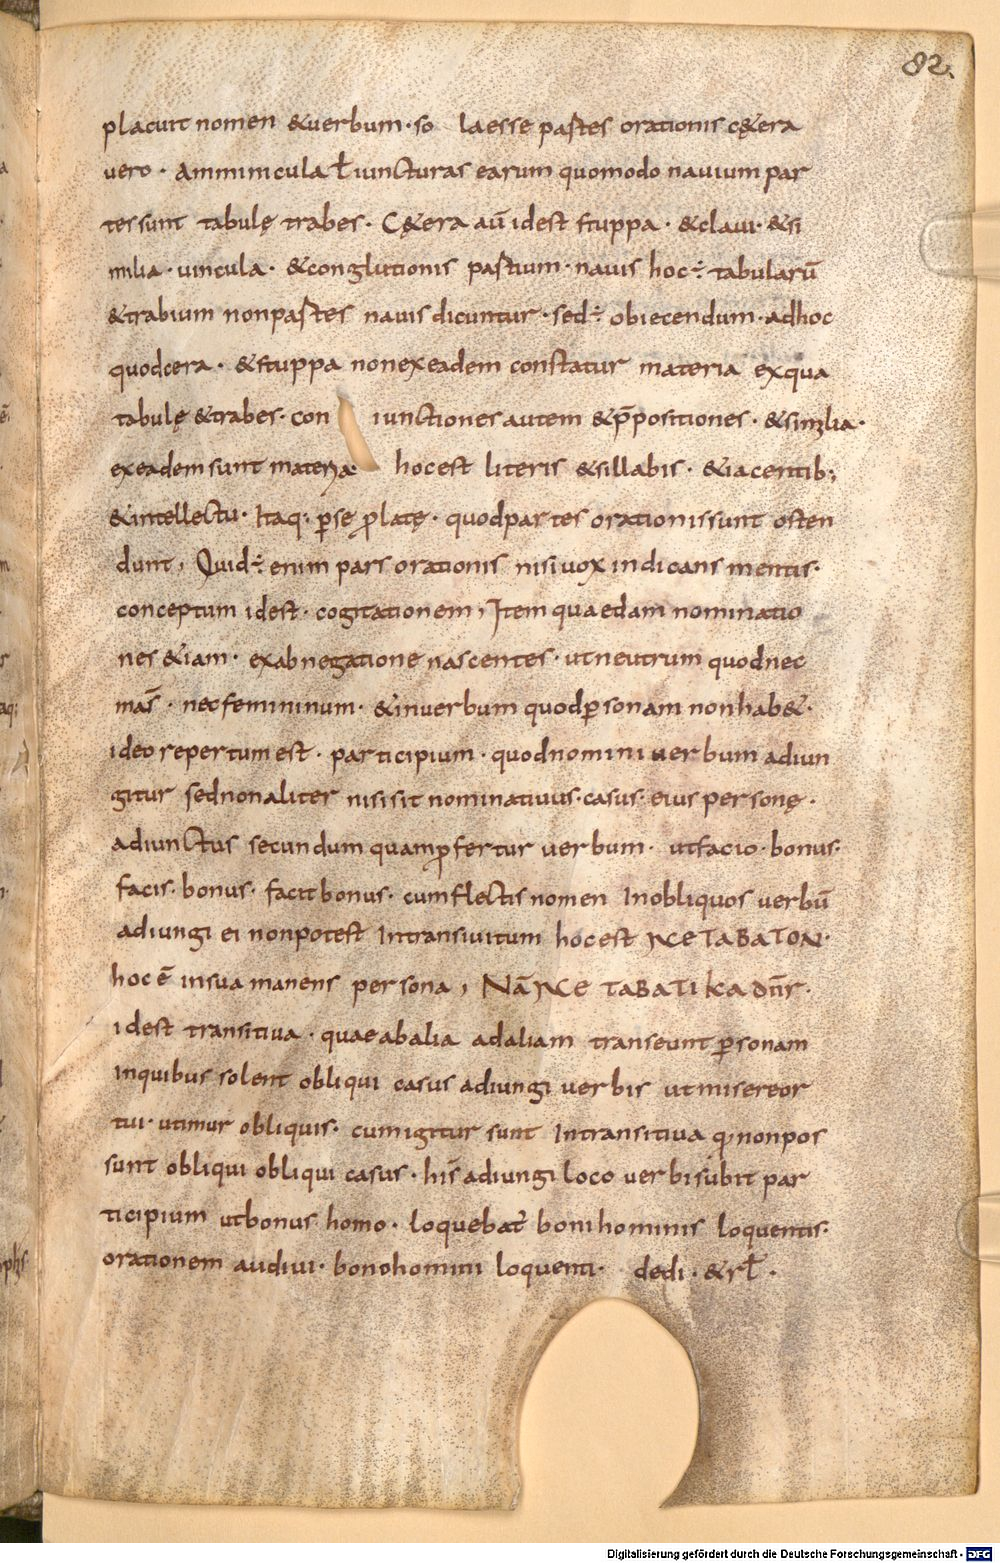 82.
placuit nomen &uerbum·so laesse partes orationis c&era
uero· Amminicula ł iuncturas earum quomodo nauium par
tes sunt tabulę trabes· C&era aū idest stuppa· &claui· &si
milia· uincula· &conglutionis partium· nauis hoc ÷ tabularū
&trabium nonpartes nauis dicuntur· sed ÷ obiecendum· adhoc
quodcera· &stuppa nonexeadem constatur materia exqua
tabulę &trabes· con iunctiones autem &p̄positiones· &similia·
exeadem sunt materia· hocest literis &sillabis· &iacentib;
&intellectu· Itaq; ꝑsę ꝓlatę· quodpartes orationissunt osten
dunt, Quid ÷ enim pars orationis nisi uox indicans mentis·
conceptum idest· cogitationem, Item quaedam nominatio
nes &iam· exabnegatione nascentes· utneutrum quodnec
mas̄· necfemininum· &inuerbum quodꝑsonam nonhab&·
ideo repertum est· participium· quodnomini uerbum adiun
gitur sednonaliter nisisit nominatiuus·casus· eius personę·
adiunctus secundum quamꝓfertur uerbum· utfacio·bonus·
facis·bonus· facit bonus· cumflectis nomen Inobliquos uerbū
adiungi ei nonpotest Intransiuitum hocest ΜCΕ ΤΑΒΑΤΟΝ·
hoc ē insua manens persona, Nā ΜCΕ ΤΑΒΑΤΙΚΑ dn̄r·
idest transitiua· quaeabalia adaliam transeunt ꝑsonam
Inquibus solent obliqui casus adiungi uerbis utmisereor
tui·utimur obliquis· cumigitur sunt Intransitiua q· nonpos
sunt obliqui obliqui casus· his adiungi loco uerbisubit par
ticipium utbonus homo· loquebat̄ bonihominis loquentis·
orationem audiui· bonohomini loquenti· dedi· &rł·
Digitalisierung gefördert durch die Deutsche Forschungsgemeinschaft - DFG